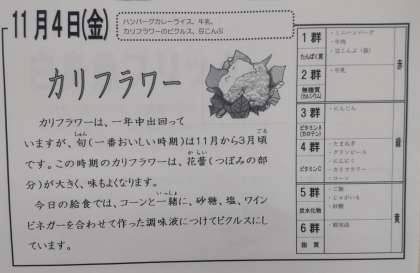 11月4日(金)
ハンバーグカレーライス、牛乳、
カリフラワーのピクルス、豆こんぶ
カリフラワー
カリフラワーは、一年中出回って
いますが、旬(一番おいしい時期)は11月から3月頃
しゅん
ごろ
です。この時期のカリフラワーは、花蕾(つぼみの部
からい
分)が大きく、味もよくなります。
今日の給食では、コーンと一緒に、砂糖、塩、ワイン
いっしょ
ビネガーを合わせて作った調味液につけてピクルスにし
ています。
1群
たんぱく質
・ミニハンバーグ
・牛肉
・豆こんぶ
赤
2群
無機質
(カルシウム)
・牛乳
3群
ビタミンA
(カロテン)
・にんじん
緑
4群
ビタミンC
・たまねぎ
・グリンピース
・にんにく
・カリフラワー
・コーン
5群
炭水化物
・ご飯
・じゃがいも
・砂糖
黄
6群
脂質